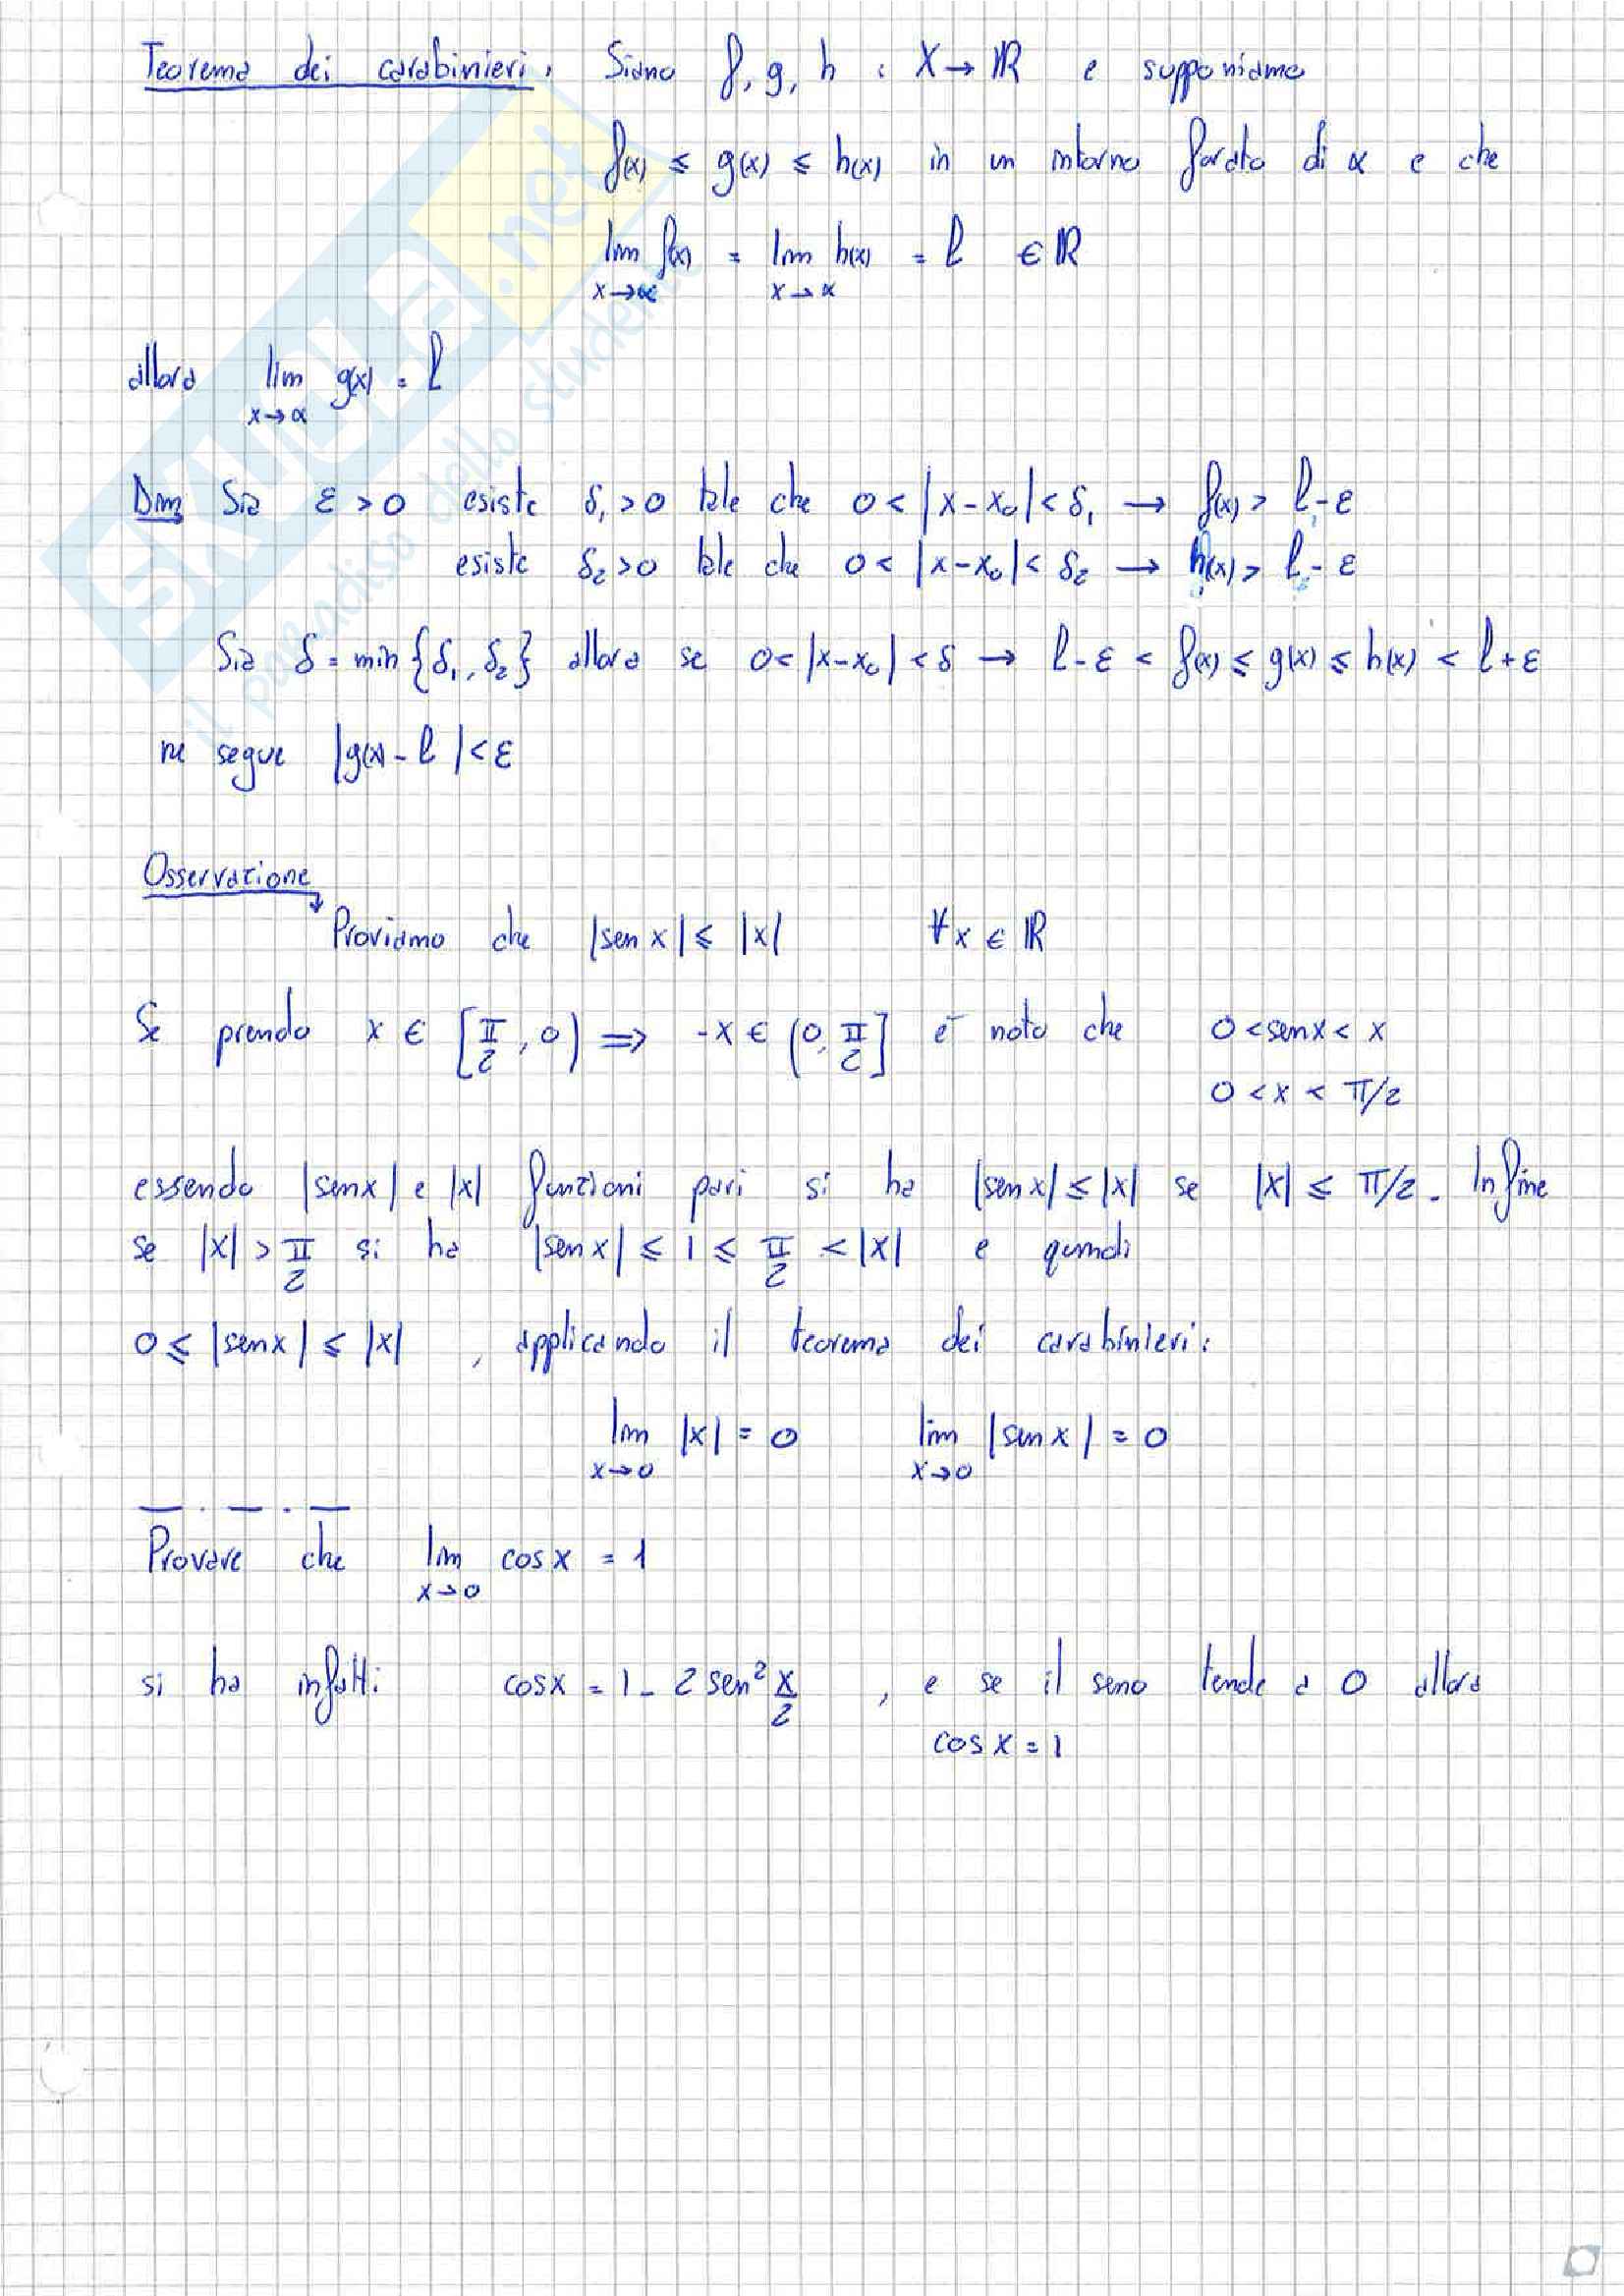 Teorema dei carabinieri: Siano f, g, h : X → ℝ e supponiamo
f(x) ≤ g(x) ≤ h(x) in un intorno forato di α e che
lim f(x) = lim h(x) = l ∈ ℝ
x→α x→α
allora lim g(x) = l
x→α
Dim Sia ε > 0 esiste δ₁ > 0 tale che 0 < |x - x₀| < δ₁ → f(x) > l - ε
esiste δ₂ > 0 tale che 0 < |x - x₀| < δ₂ → h(x) > l - ε
Sia δ = min {δ₁, δ₂} allora se 0 < |x - x₀| < δ → l - ε < f(x) ≤ g(x) ≤ h(x) < l + ε
ne segue |g(x) - l| < ε
Osservazione
Proviamo che |sen x| ≤ |x| ∀x ∈ ℝ
Se prendo x ∈ [π/2, 0) ⇒ -x ∈ (0, π/2] è noto che 0 < sen x < x
0 < x < π/2
essendo |sen x| e |x| funzioni pari si ha |sen x| ≤ |x| se |x| ≤ π/2. Infine
se |x| > π/2 si ha |sen x| ≤ 1 ≤ π/2 < |x| e quindi
0 ≤ |sen x| ≤ |x| , applicando il teorema dei carabinieri:
lim |x| = 0 lim |sen x| = 0
x→0 x→0
— . — . —
Provare che lim cos x = 1
x→0
si ha infatti: cos x = 1 - 2 sen² x/2 , e se il seno tende a 0 allora
cos x = 1
SKUOLA.net
il paradiso dello studente